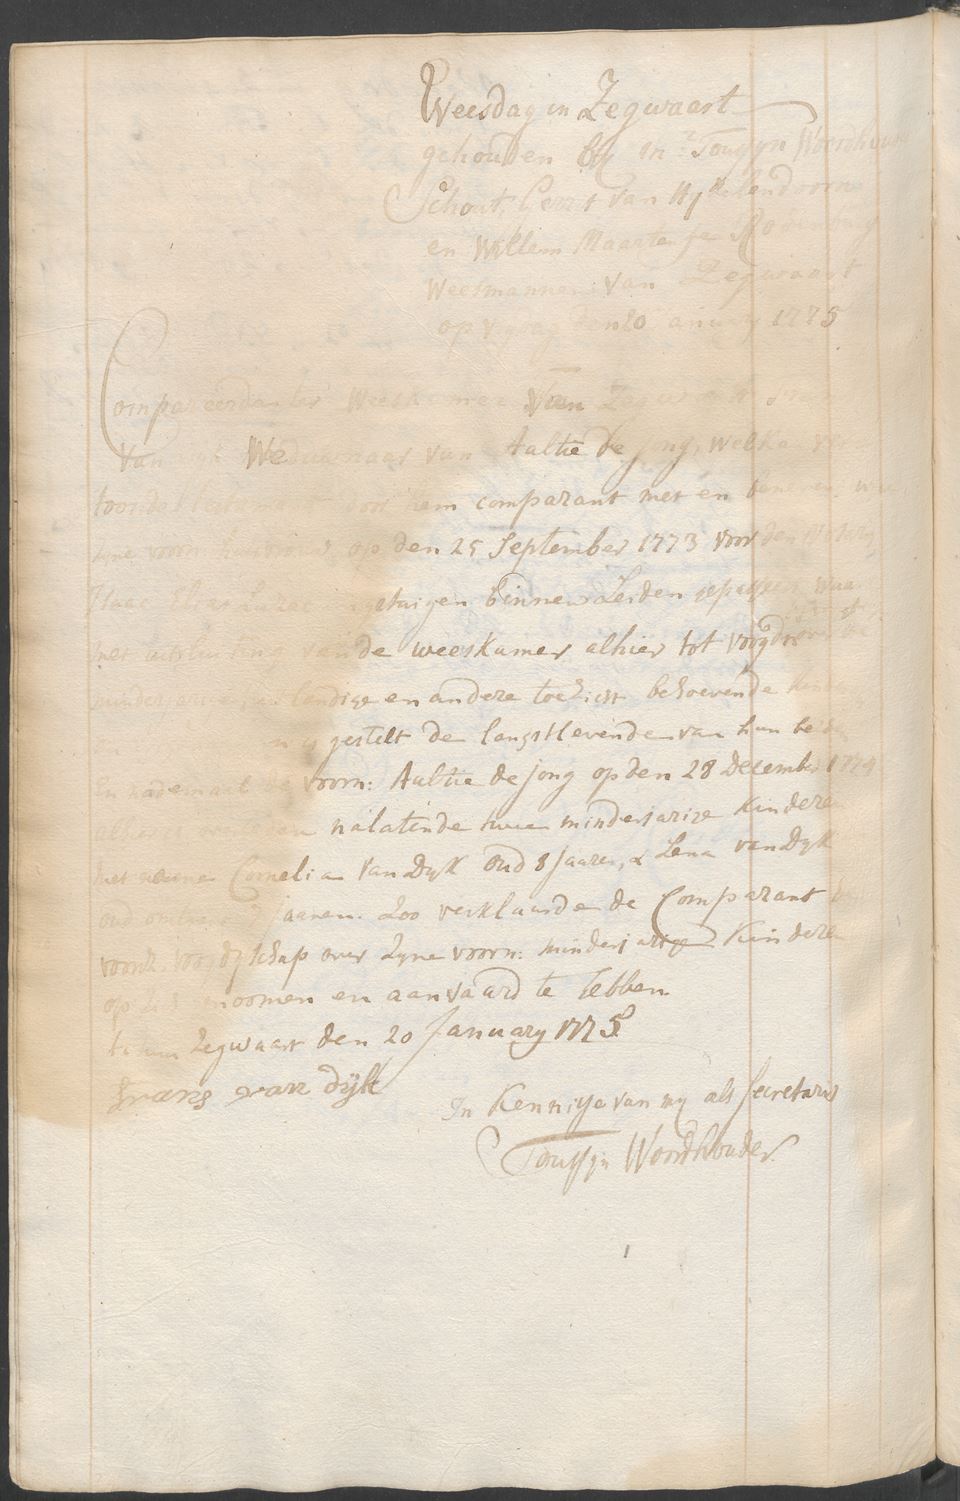 Weesdag in Zegwaart
gehouden by Mr. Toussyn Woordhouder
Schout, Gerrit van
en Willem Maartensze Rodenburg
Weesmannen van Zegwaart
op vrydag den 20 January 1775
Compareerde ter Weeskamer van Zegwaart Frans
van Dyk Weduwnaar van Aaltie de Jong, welke ver
toonde Testament door hem comparant met en benevens
zyne voorn: huisvrouw op den 25 September 1773 voor den Notary
Isaac Elias Luzac getuigen binnen Leiden gepasseert waar
met uitsluiting van de weeskamer alhier tot voogd over de
minderjarige en andere toezigt behoevende
is gestelt de langstlevende van hun beide
En nademaal de voorn: Aaltie de Jong op den 28 December 1774
alhier nalatende twee minderjarige Kinderen
met name Cornelia van Dyk oud 8 Jaaren, & Lena van Dyk
oud omtrent 7 jaaren. Zoo verklaarde de Comparant
voorsz. voogdyschap over zyne voorn: minderjarige Kinderen
op zig genoomen en aanvaard te hebben
Zegwaart den 20 January 1775
Frans van dijk
In Kennisse van my als Secretaris
Toussyn Woordhouder